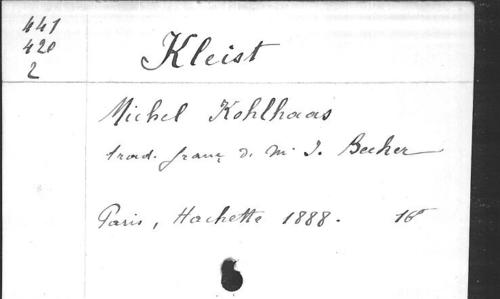 441
420
2
Kleist
Michel Kohlhaas
trad. franç d. M. I. Becher
Paris, Hachette 1888. 16°